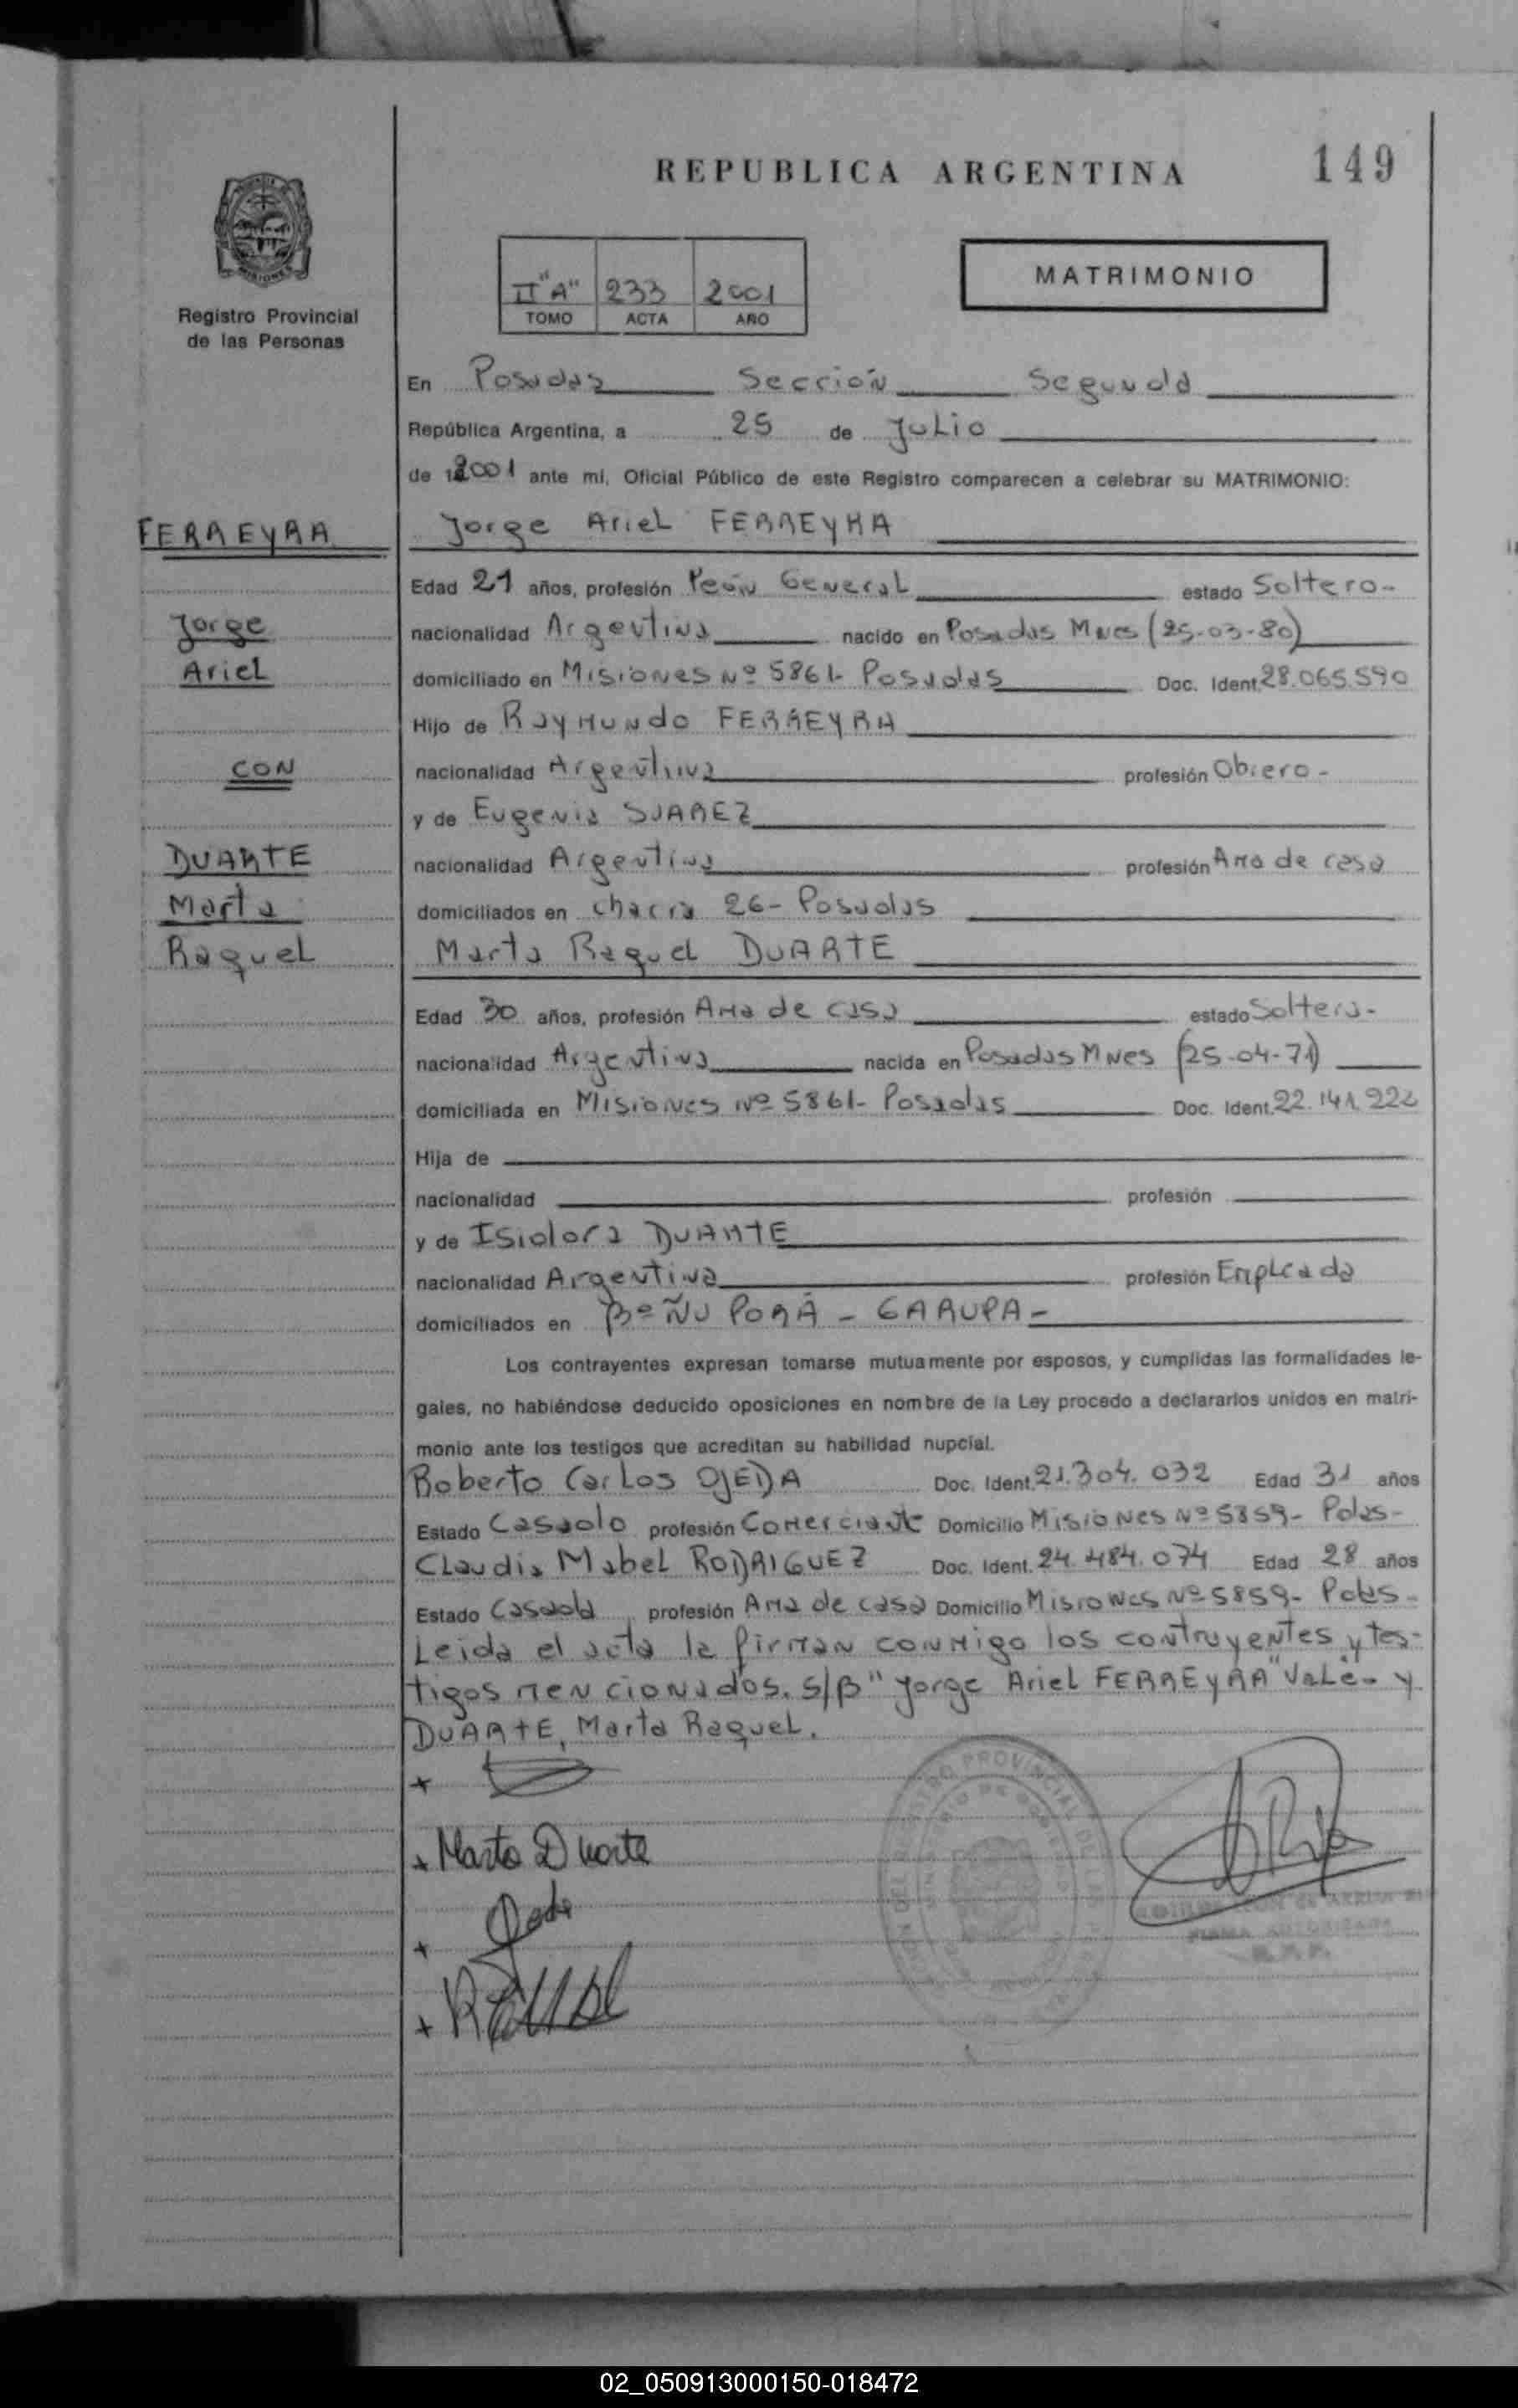 REPUBLICA ARGENTINA
149
MISIONES
Registro Provincial
de las Personas
II "A" 233 2001
TOMO ACTA AÑO
MATRIMONIO
En Posadas Sección Segunda
República Argentina, a 25 de Julio
de 2001 ante mi, Oficial Público de este Registro comparecen a celebrar su MATRIMONIO:
FERREYRA
Jorge Ariel FERREYRA
Edad 21 años, profesión Peón General estado Soltero-
Jorge
nacionalidad Argentina nacido en Posadas Mnes (25-03-80)
Ariel
domiciliado en Misiones Nº 5861- Posadas Doc. Ident. 28.065.590
Hijo de Raymundo FERREYRA
CON
nacionalidad Argentina profesión Obrero-
y de Eugenia SUAREZ
DUARTE
nacionalidad Argentina profesión Ama de casa
Marta
domiciliados en chacra 26- Posadas
Raquel
Marta Raquel DUARTE
Edad 30 años, profesión Ama de casa estado Soltera-
nacionalidad Argentina nacida en Posadas Mnes (25-04-71)
domiciliada en Misiones Nº 5861- Posadas Doc. Ident. 22.141.222
Hija de
nacionalidad profesión
y de Isidora DUARTE
nacionalidad Argentina profesión Empleada
domiciliados en Bº ÑU PORÁ - GARUPA-
Los contrayentes expresan tomarse mutuamente por esposos, y cumplidas las formalidades le-
gales, no habiéndose deducido oposiciones en nombre de la Ley procedo a declararlos unidos en matri-
monio ante los testigos que acreditan su habilidad nupcial.
Roberto Carlos OJEDA Doc. Ident. 21.304.032 Edad 31 años
Estado Casado profesión Comerciante Domicilio Misiones Nº 5859- Pdas-
Claudia Mabel RODRIGUEZ Doc. Ident. 24.484.074 Edad 28 años
Estado Casada profesión Ama de casa Domicilio Misiones Nº 5859- Pdas-
Leida el acta la firman conmigo los contrayentes y tes-
tigos mencionados. S/B "Jorge Ariel FERREYRA" Vale- y
DUARTE, Marta Raquel.
Marta Duarte
02_050913000150-018472